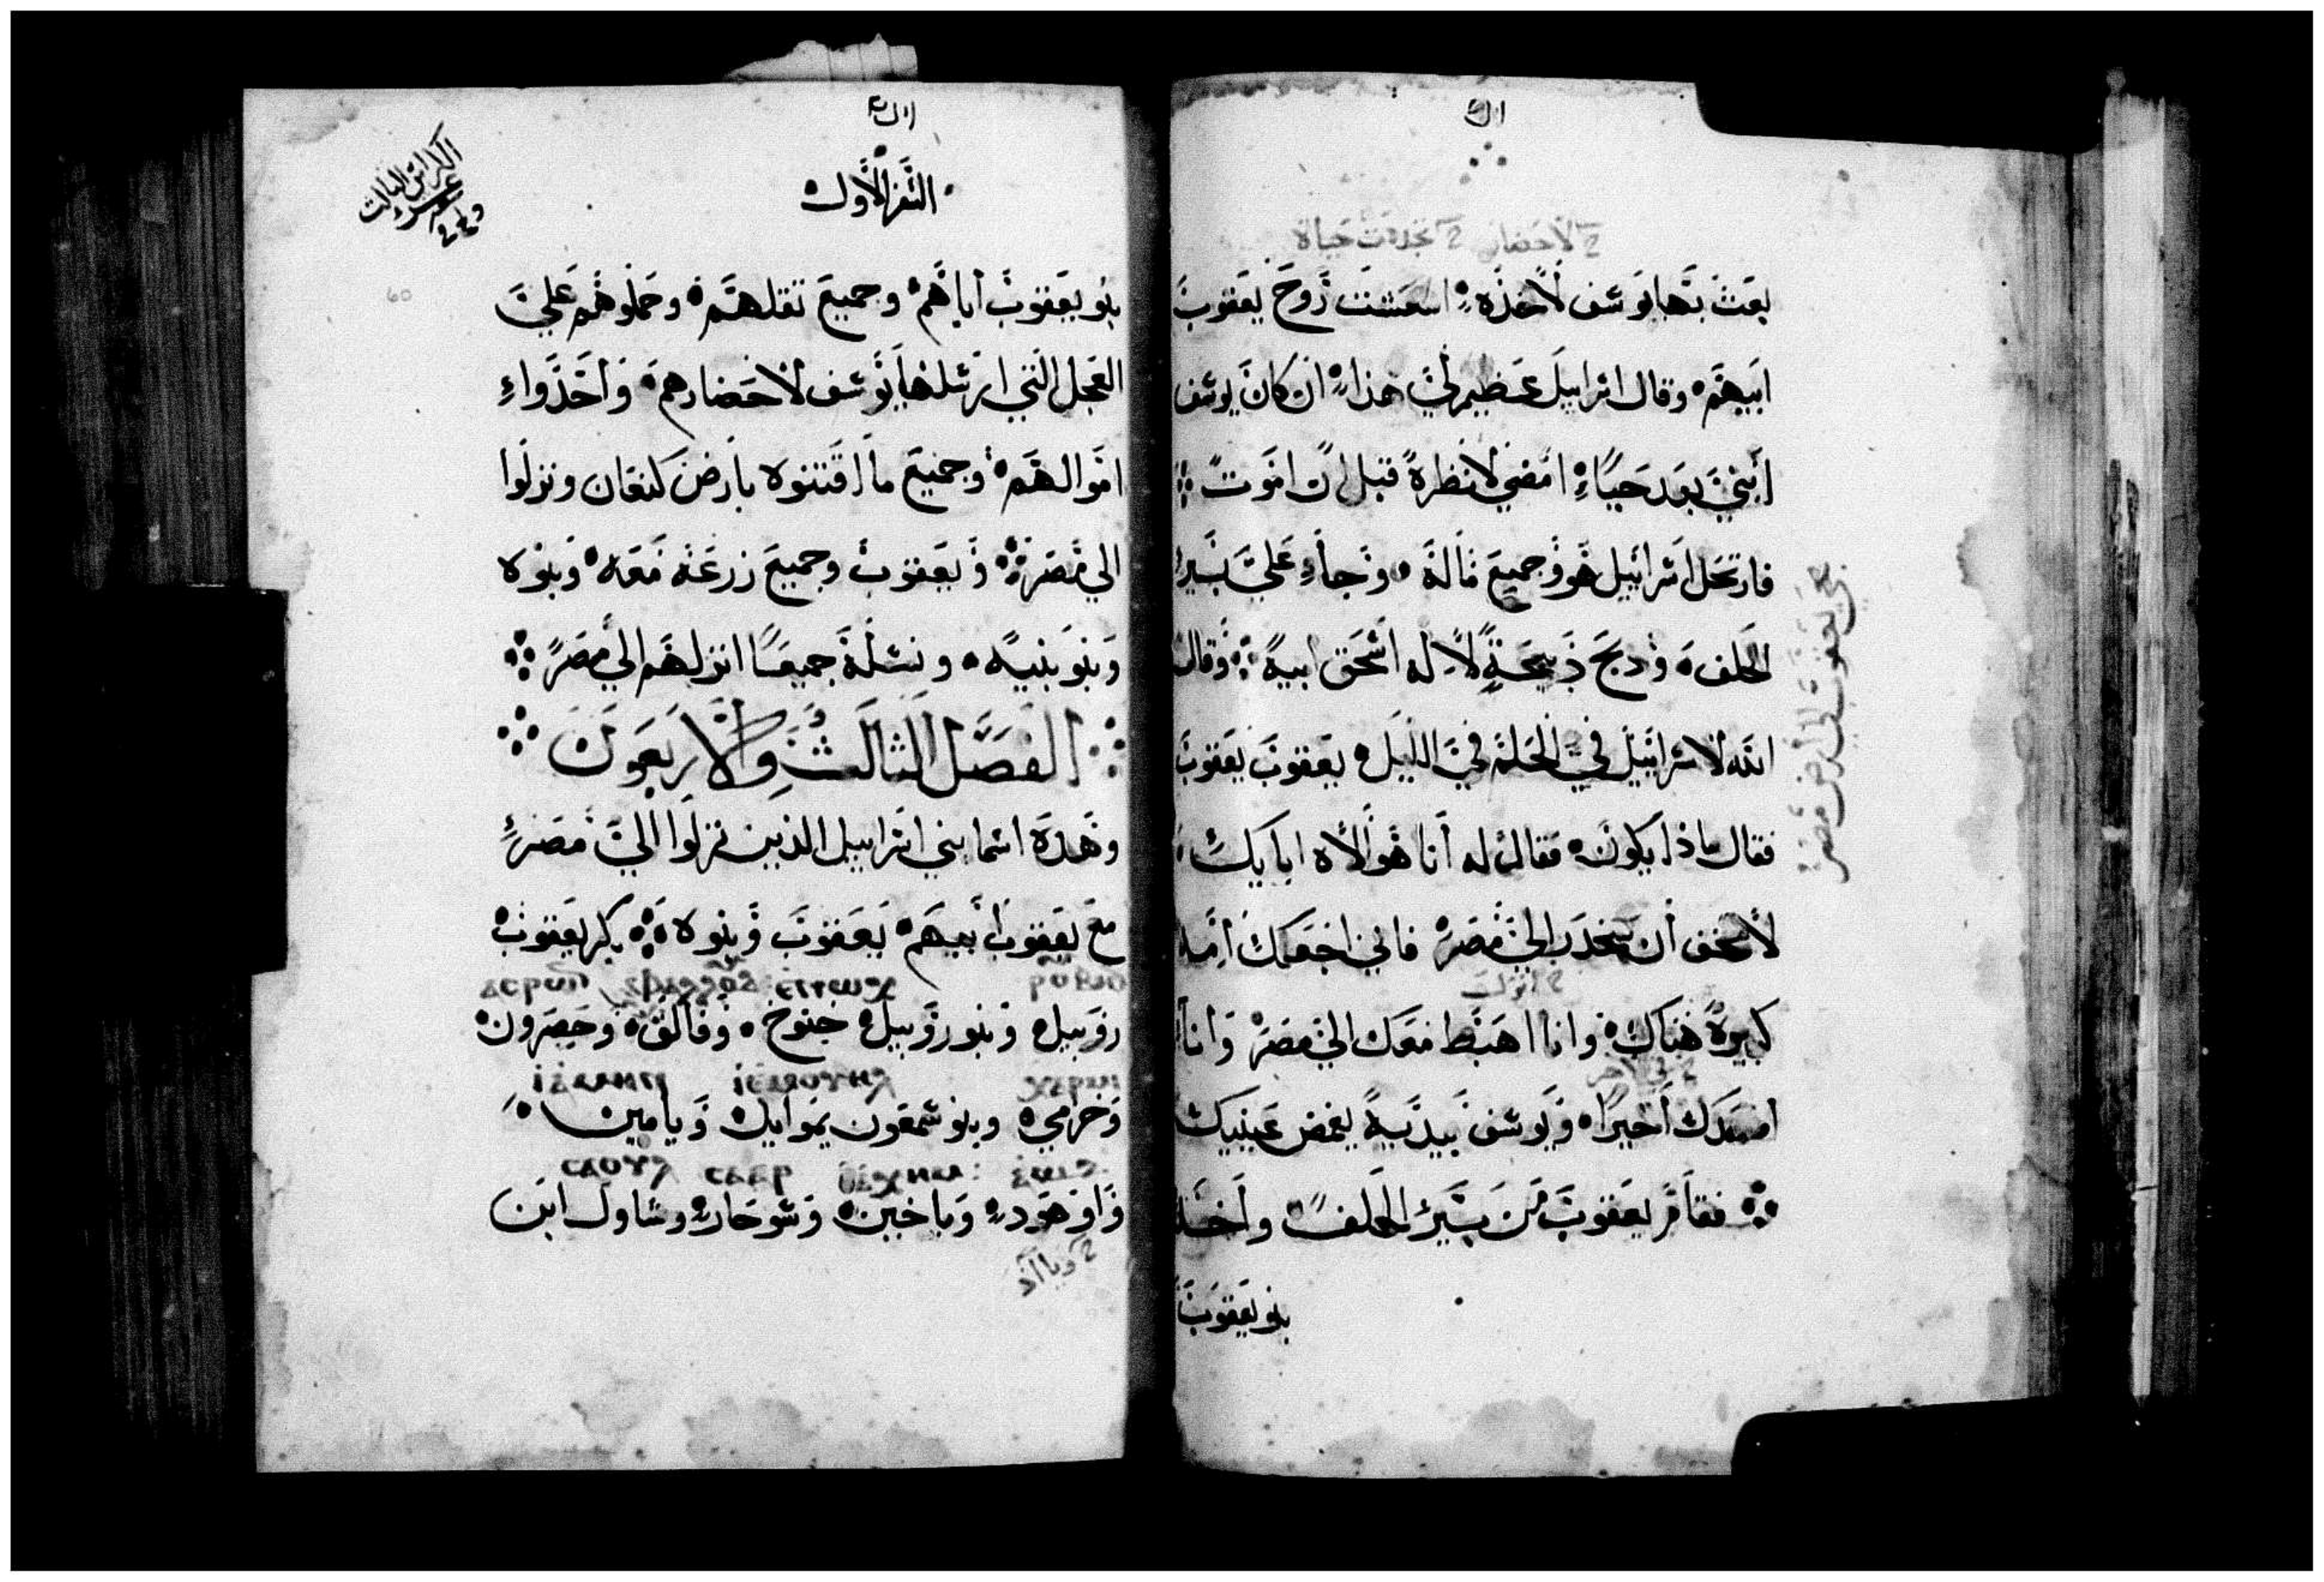 لاحضاره تجددت حياة
بعث بها يوسف لاخذه اسعشت روح يعقوب
ابيهم وقال اسرابيل عظيم لي هذا ان كان يوسف
ابني بعد حيًا امضي لانظره قبل ان اموت
فارتحل اسراييل هو وجميع ماله وجاء علي بير
الحلف ودبح ذبيحة لاله اسحق ابيه وقال
الله لاسراييل في الحلم في الليل يعقوب يعقوب
فقال ماذا يكون فقال له أنا هو الاه ابايك
لا تخف أن تنحدر الي مصر فاني اجعلك امه
انزل
كبيرة هناك وانا اهبط معك الي مصر وانا
الي الاخر
اصعدك أخيرًا ويوسف بيديه يغمض عينيك
فقام يعقوب من بير الحلف وأخذ
بنو يعقوب
مجي يعقوب الي أرض مصر
السفر الأول
الكراس الثالث
عشر
بنو يعقوب أباهم وجميع ثقلهم وحملوهم علي
العجل التي ارسلها يوسف لاحضارهم واخذوا
اموالهم وجميع ما اقتنوه بارض كنعان ونزلوا
الي مصر ويعقوب وجميع زرعه معه وبنوه
وبنو بنيه ونسله جميعًا انزلهم الي مصر
الفصل الثالث والاربعون
وهذه اسما بني اسرابيل الذين نزلوا الي مصر
مع يعقوب أبيهم يعقوب وبنوه بكر يعقوب
روبيل وبنو روبيل خنوخ وفالق وحصرون
وخرمي وبنو شمعون يموايل ويامين
واوهود وياخين وسوحار وشاول ابن